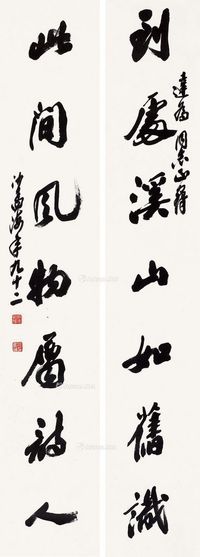 到處溪山如舊識
達為同志正腕
此間風物屬詩人
沙孟海年九十二